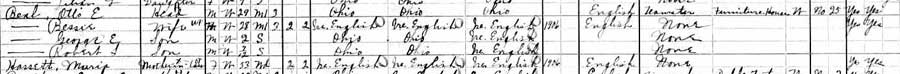 Beal, Otti E. Head M W 29 M 3 Ohio Ohio Ohio English Teamster Furniture House W No 25 Yes Yes
— Bessie Wife F W 28 M 3 2 2 Ire. English Ire. English Ire. English 1914 English None Yes Yes
— George E Son M W 2 S Ohio Ohio Ire. English None
— Robert L Son M W S Ohio Ohio Ire. English None
Hassett, Maria Mother-in-law F W 53 Wd 2 2 Ire. English Ire. English Ire. English 1914 English None Yes Yes